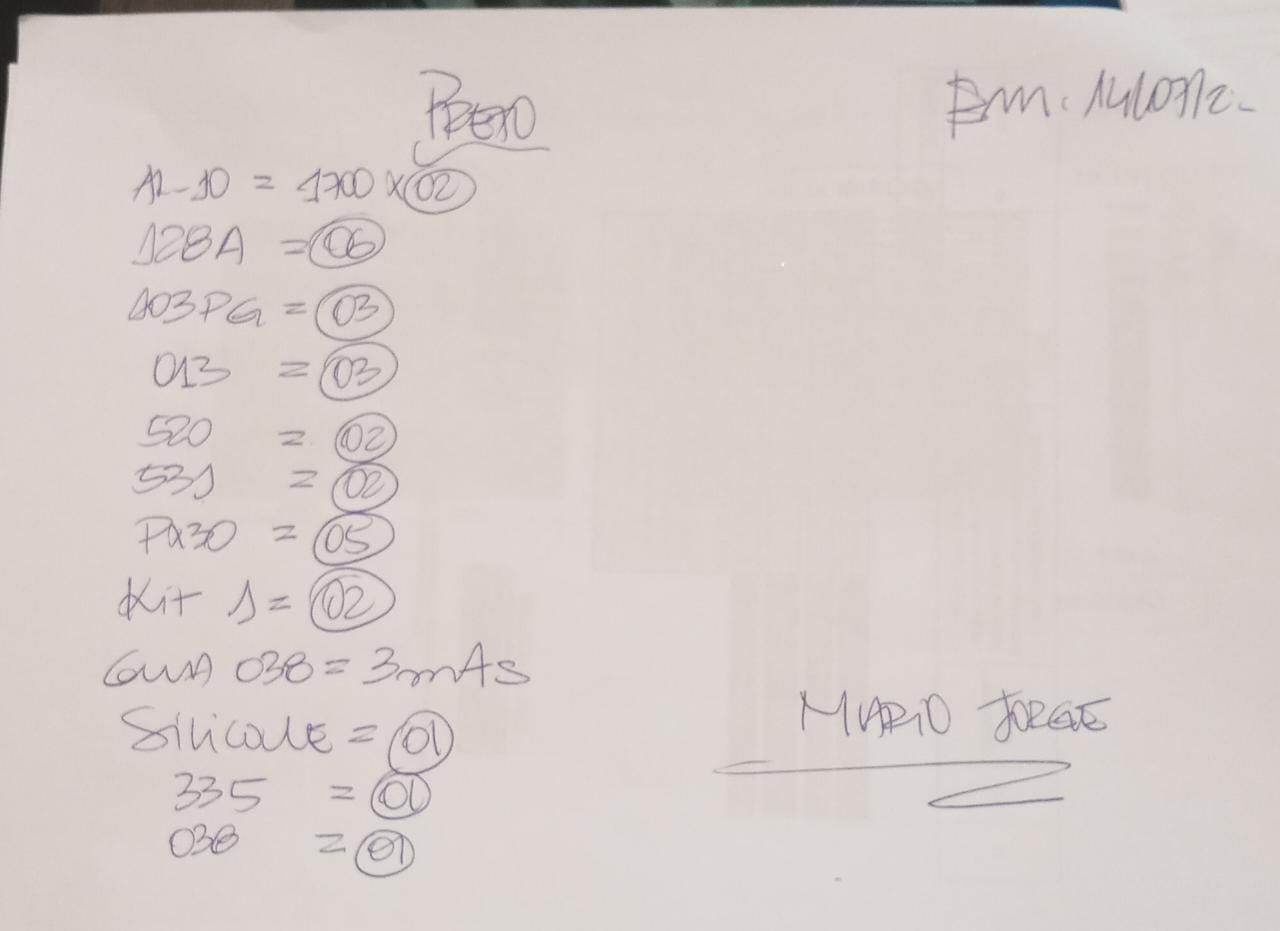 PRETO
Bm. 14/07/2
AL-10 = 1700 x 02
128A = 06
103PG = 03
013 = 03
520 = 02
531 = 02
PX30 = 05
Kit 1 = 02
038 = 3mAs
Silicone = 01
335 = 01
038 = 01
MARIO JORGE